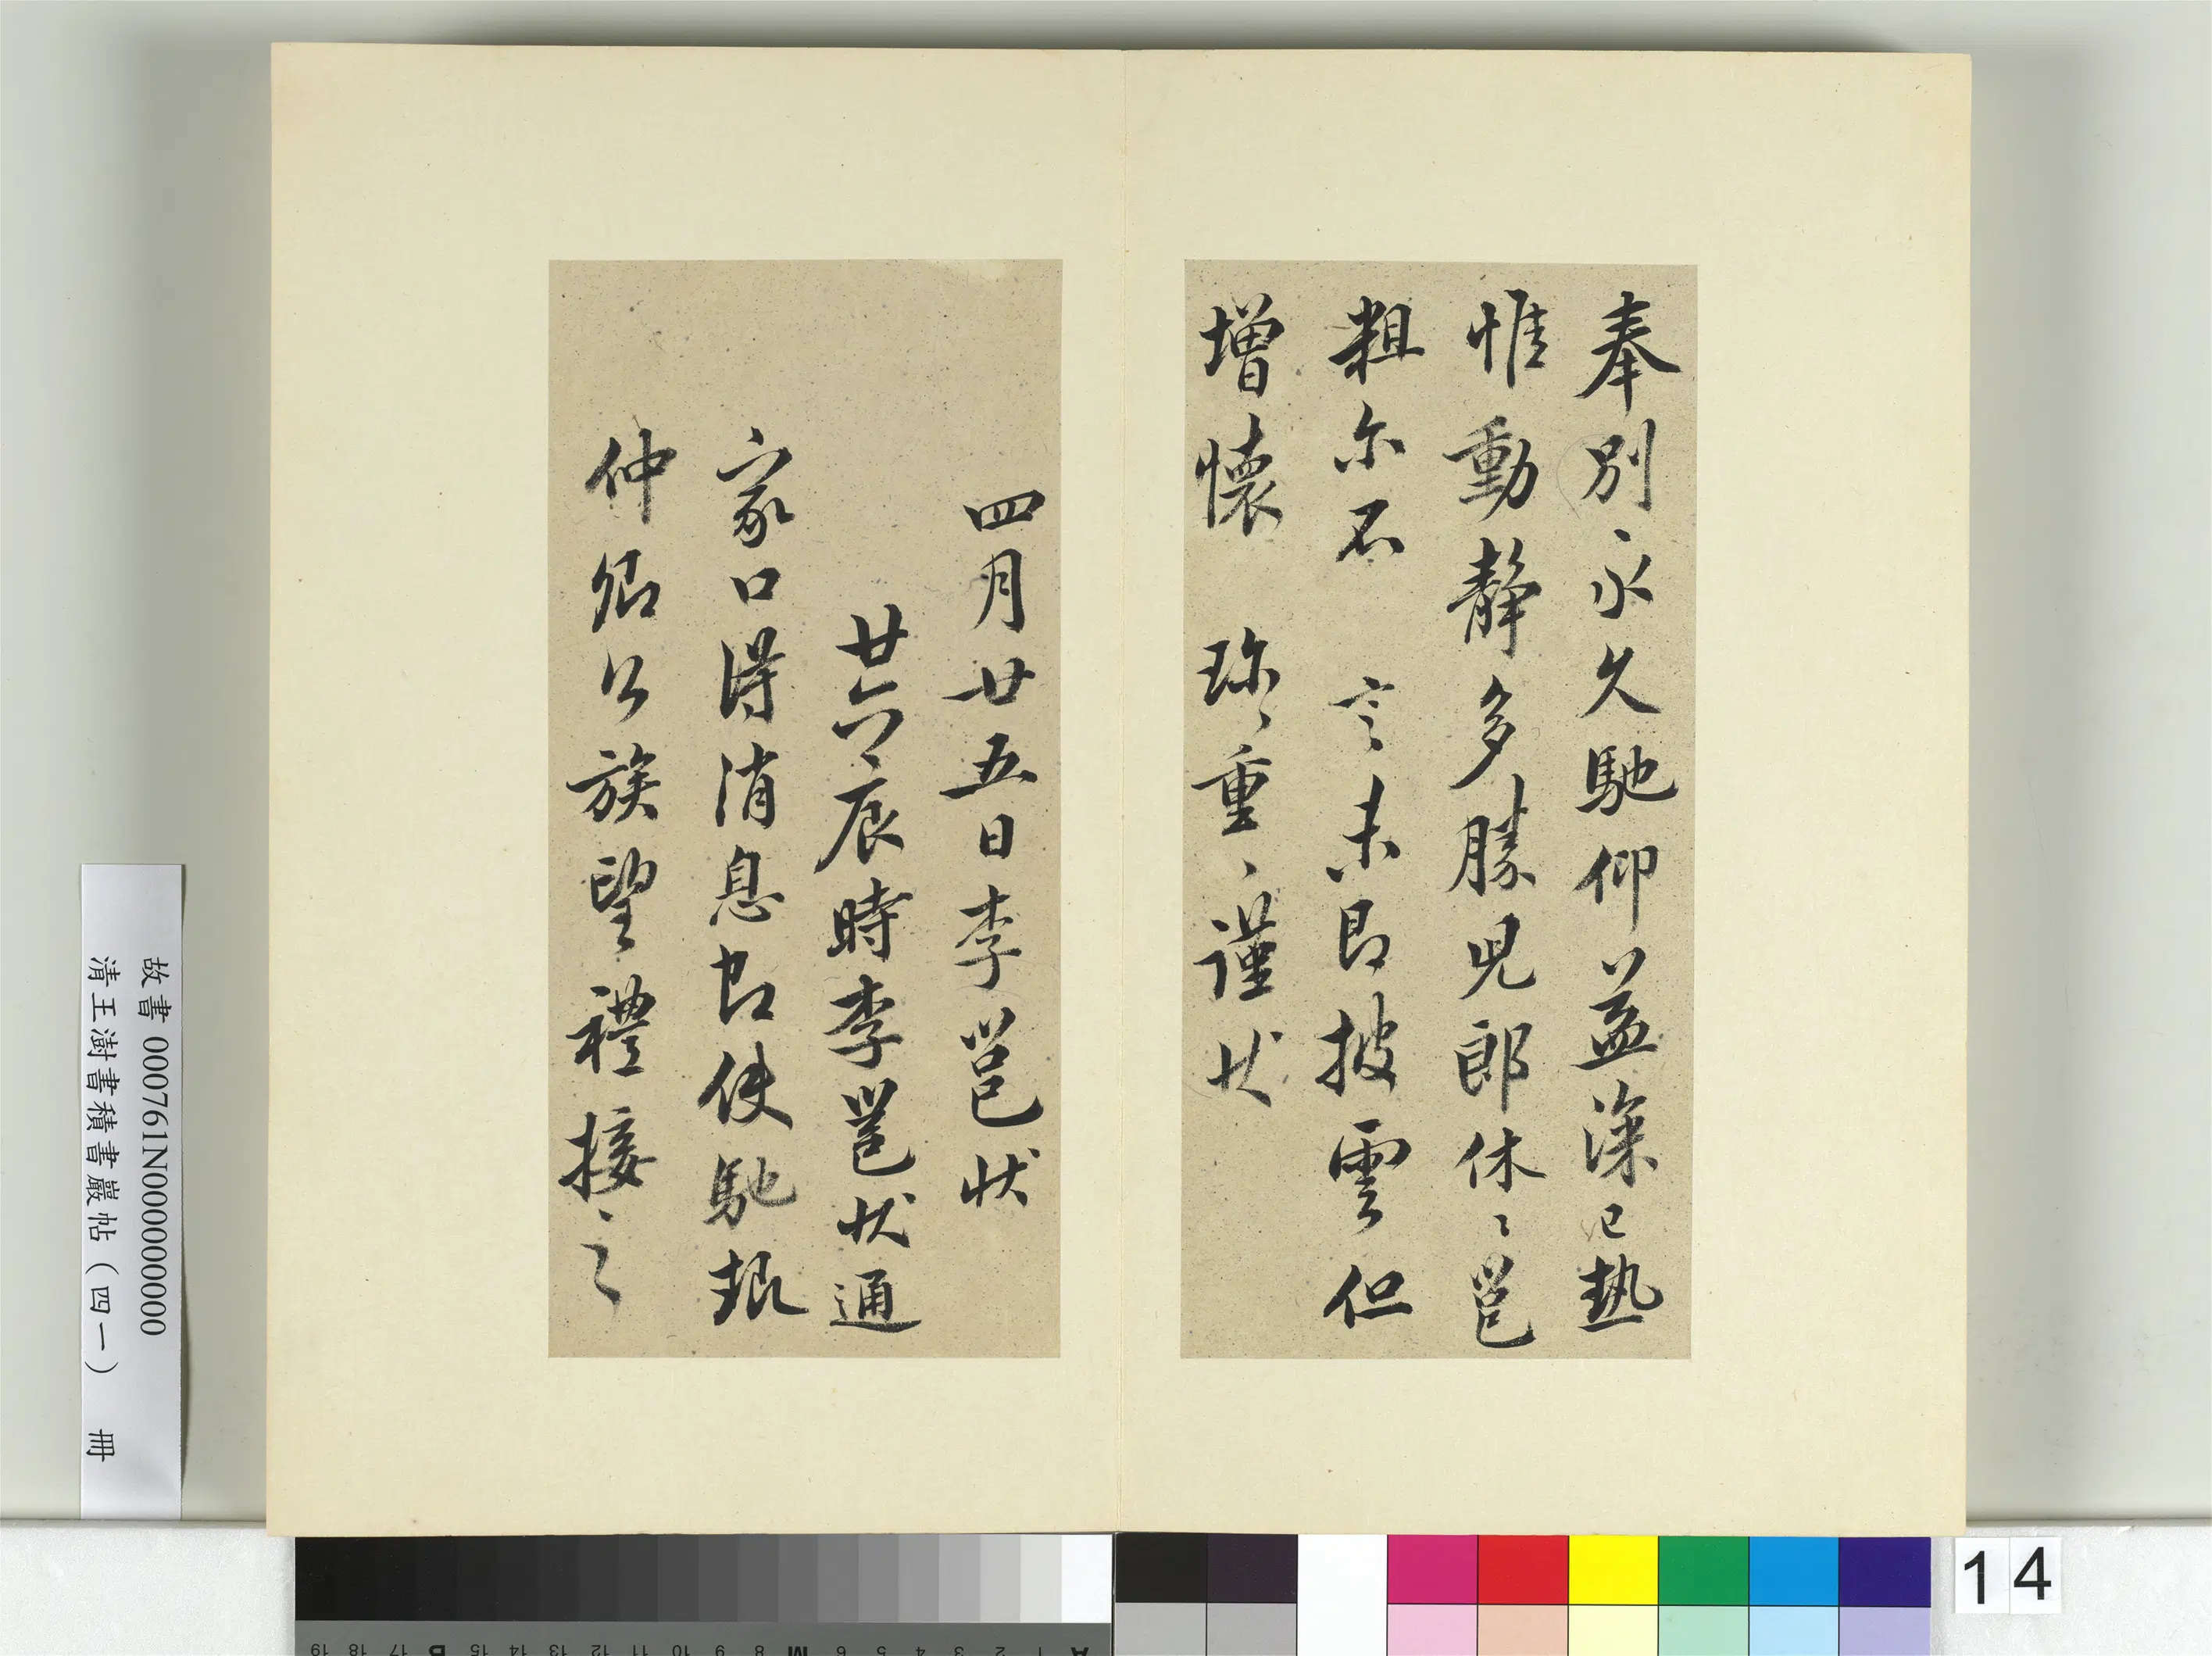 奉別、永久馳仰益深已熱
惟動靜多勝兒郎休〻邕
粗尔不 言未即披雲但
增懷 珎〻重〻謹狀
四月廿五日李邕狀
廿六辰時李邕狀通
家口得消息即使馳報
仲卿公族望禮接〻之
故書 000761N000000000
清王澍書積書巖帖（四一） 冊
14